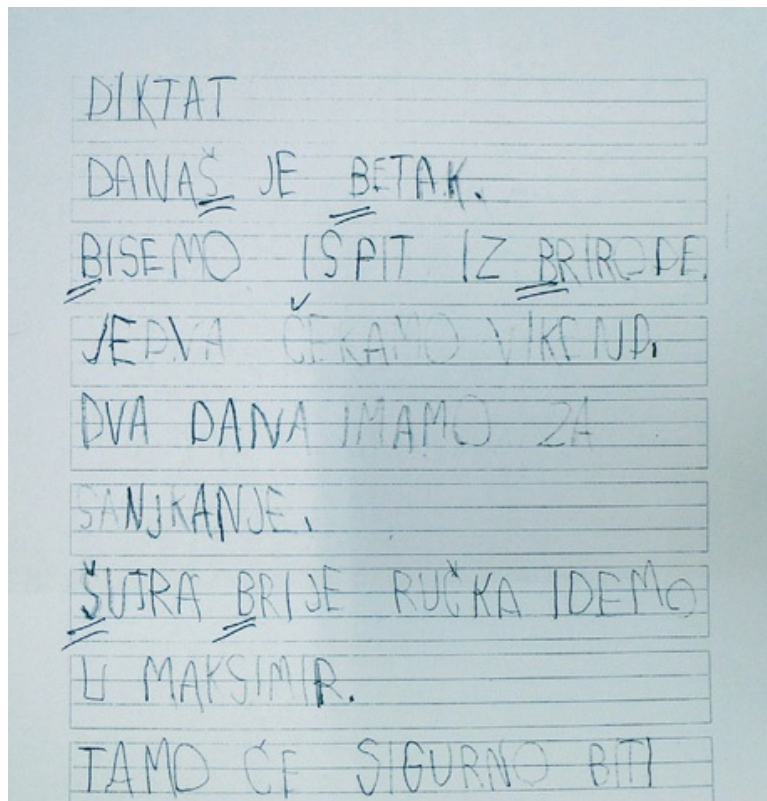 DIKTAT
DANAŠ JE BETAK.
BISEMO ISPIT IZ BRIRODE.
JEDVA ČEKAMO VIKEND.
DVA DANA IMAMO ZA
SANJKANJE.
ŠUTRA BRIJE RUČKA IDEMO
U MAKSIMIR.
TAMO ČE SIGURNO BITI